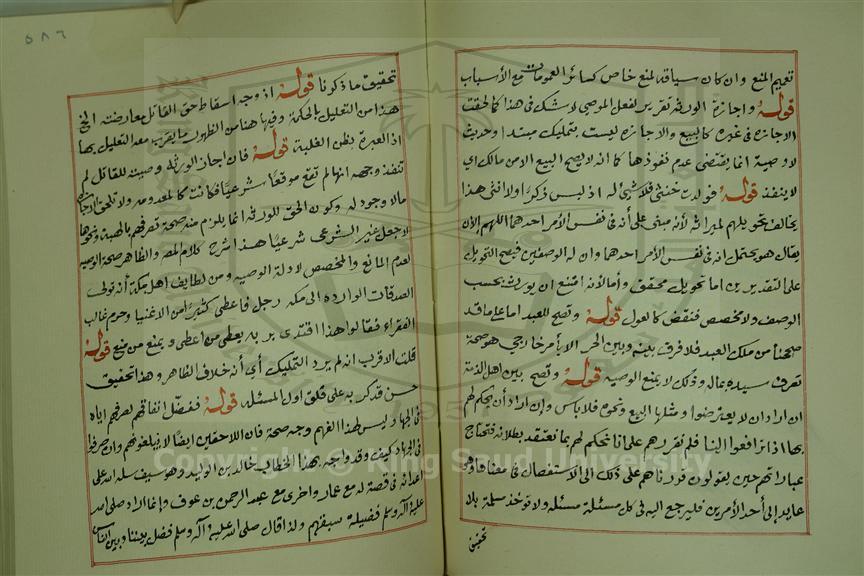 تعميم المنع وان كان سياقه لمنع خاص كسائر العمومات مع الأسباب
قوله واجازة الورثة تقرير لفعل الموصي لا شك في هذا كما لحقت
الاجازة في غيره كالبيع والاجازه ليست بتمليك مبتدا وحديث
لا وصية انما يقتضى عدم نفوذها كما انه لا يصح البيع الا من مالك اي
لا ينفذ قوله فولدت خنثى فلا شي له اذ ليس ذكرًا ولا انثى هذا
يخالف تحويلهم لميراثه لأنه مبنى على أنه في نفس الأمر احدهما اللهم الا ان
يقال هو يحتمل انه في نفس الأمر احدهما وان له الوصفين فيصح التحويل
على التقديرين اما تحويل محقق وأما لأنه امتنع ان يورث بحسب
الوصف ولا مخصص فنقض كالعول قوله وتصح للعبد اما على ما قد
صححنا من ملك العبد فلا فرق بينه وبين الحر الا بأمر خارجي هو صحة
تصرف سيده بماله وذلك لا يمنع الوصيه قوله وتصح بين اهل الذمة
ان اراد ان لا يعترضوا ومثلها البيع ونحوه فلا باس وإن اراد أن يحكم لهم
بها اذا ترافعوا الينا فلم نقررهم على انا نحكم لهم بما نعتقد بطلانه فتحتاج
عباراتهم حين يقولون قررناهم على ذلك الى الاستفصال في معناها فهو
عايد إلى أحد الأمرين فليرجع اليه في كل مسئلة مسئله ولا توخذ مسلمة بلا
تحقيق
٥٨٦
تحقيق ما ذكرنا قوله اذ وجه اسقاط حق القاتل معارضته الخ
هذا من التعليل بالحكمة وفيها هنا من الظهور ما يقرب معه التعليل بها
اذ العبرة بظن الغلبة قوله فان اجاز الورثه وصيته للقاتل لم
تنفذ وجهه انها لم تقع موقعًا شرعيًا فكانت كالمعدومه ولا تلحق الاجازة
مالا وجود له وكون الحق للورثه انما يلزم منه صحة تصرفهم بالهبة ونحوها
لا جعل غير الشرعي شرعيًا هذا شرح كلام لمصر والظاهر صحة الوصيه
لعدم المانع والمخصص لادلة الوصيه ومن لطايف اهل مكة أنه تولى
الصدقات الوارده الى مكه رجل فأعطى كثيرًا من الاغنيا وحرم غالب
الفقراء فقالوا هذا اقتدى بربه يعطى من اعطى ويمنع من منع قوله
قلت الاقرب انه لم يرد التمليك أي أنه خلاف الظاهر وهذا تحقيق
حسن قد كر به على قلق اول المسئله قوله ففضّل انفاقهم لصرفهم اياه
في الجهاد ليس لهذا الفهم وجه صحة فان اللاحقين ايضًا لا يبلغونهم وان صرفوا
في الجهاد كيف وقد واجه بهذا الخطاب خالد بن الوليد وهو سيف سله الله على
اعدائه في قصة له مع عمار واخرى مع عبد الرحمن بن عوف وإنما اراد صلى الله
عليه وآله وسلم فضيلة سبقهم ولذا قال صلى الله عليه وآله وسلم فضل بيننا وبين الناس
Copyright © King Saud University
1957